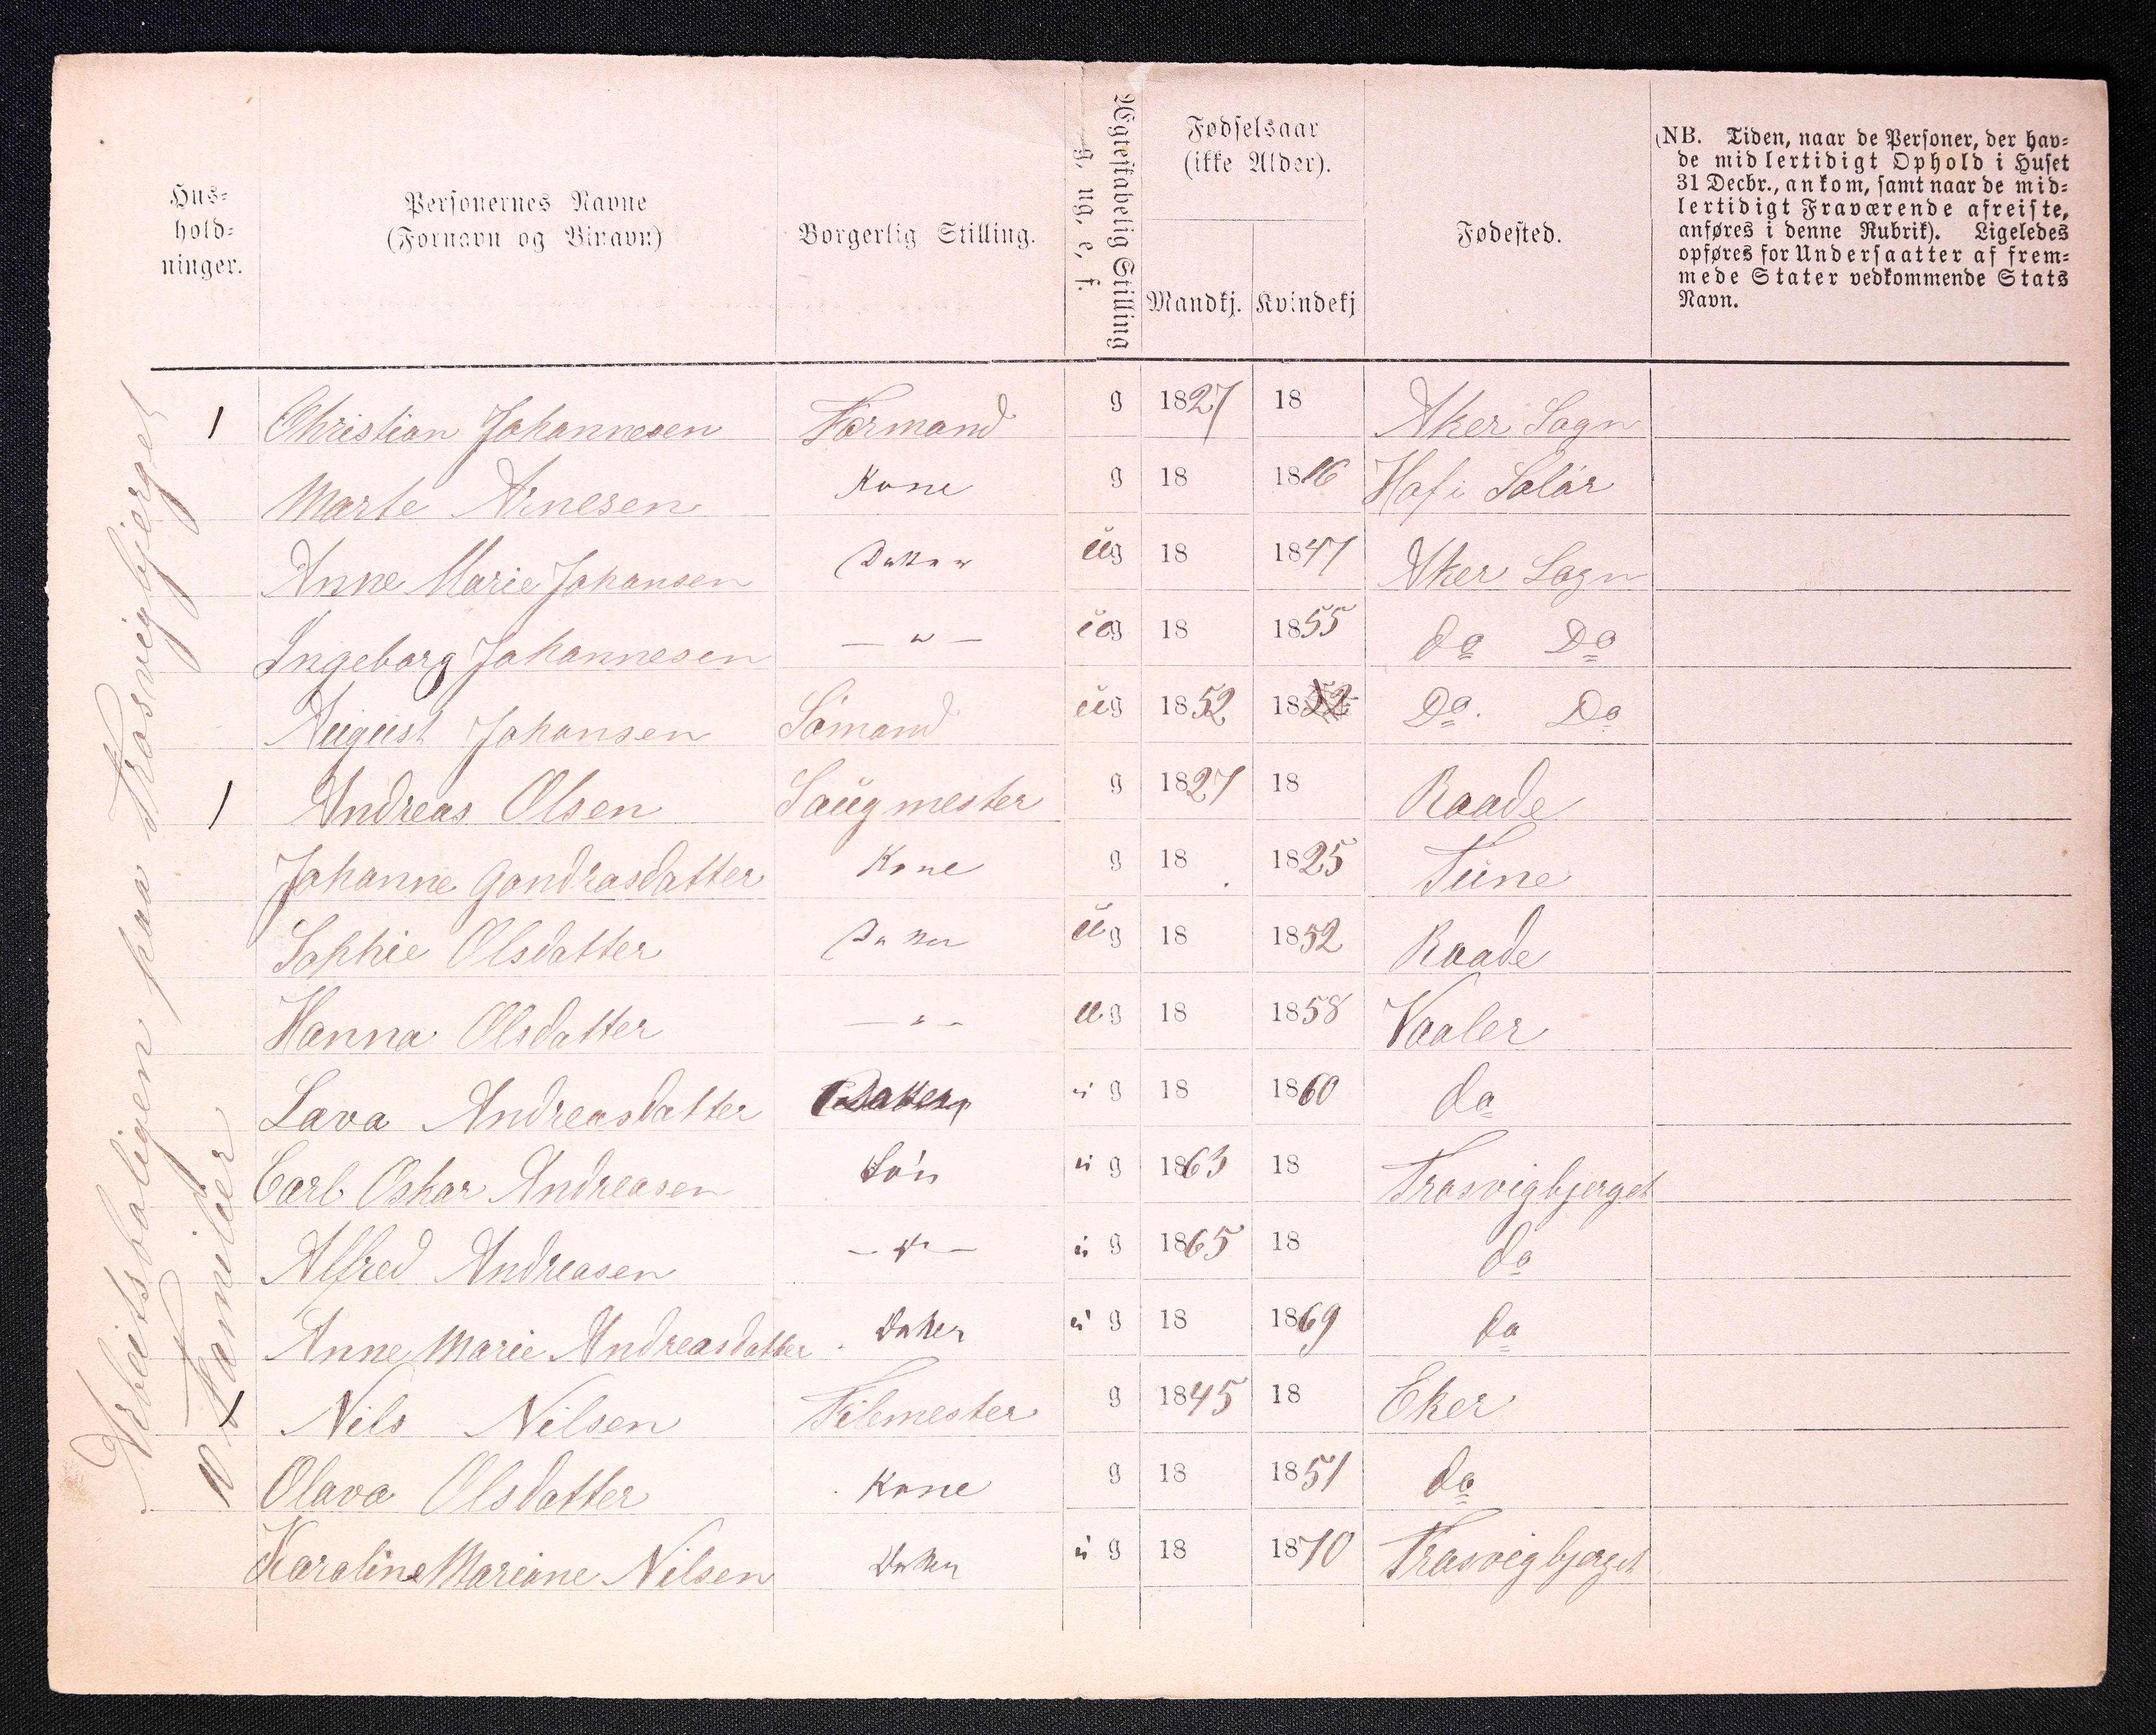 Hus-
hold-
ninger.
Personernes Navne
(Fornavn og Binavn)
Borgerlig Stilling.
Ægteskabelig Stilling
g, ug, e, f.
Fødselsaar
(ikke Alder).
Mandkj. Kvindekj
Fødested.
(NB. Tiden, naar de Personer, der hav-
de midlertidigt Ophold i Huset
31 Decbr., ankom, samt naar de mid-
lertidigt Fraværende afreiste,
anføres i denne Rubrik). Ligeledes
opføres for Undersaatter af frem-
mede Stater vedkommende Stats
Navn.
Arbeidsboligen paa Trosvigbjerget
10 Familier
1 Christian Johannesen Formand g 1827 18 Aker Sogn
Marte Arnesen Kone g 18 1816 Hof i Solör
Anne Marie Johansen Datter ug 18 1847 Aker Sogn
Ingeborg Johannesen — " — ug 18 1855 do Do
August Johansen Sömand ug 1852 1852 Do. Do
1 Andreas Olsen Saugmester g 1827 18 Raade
Johanne Gondrasdatter Kone g 18 1825 Tune
Sophie Olsdatter Datter ug 18 1852 Raade
Hanna Olsdatter — " — ug 18 1858 Vaaler
Lava Andreasdatter Datter ug 18 1860 do
Carl Oskar Andreasen Sön ug 1863 18 Trosvigbjerget
Alfred Andreasen — " — ug 1865 18 do
Anne Marie Andreasdatter Datter ug 18 1869 do
1 Nils Nilsen Filemester g 1845 18 Eker
Olava Olsdatter Kone g 18 1851 do
Karoline Mariane Nilsen Datter ug 18 1870 Trosvigbjerget